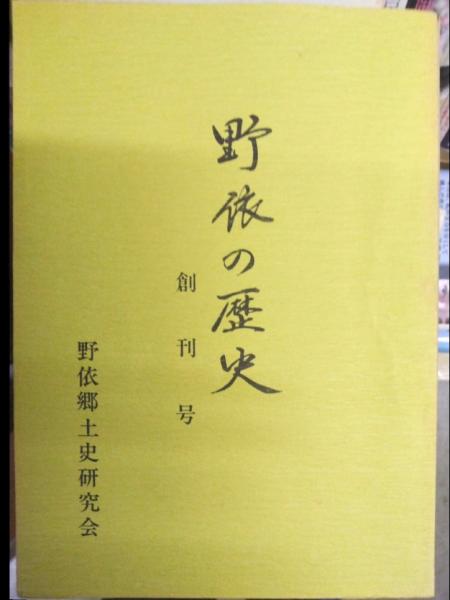 野依の歴史
創刊号
野依郷土史研究会